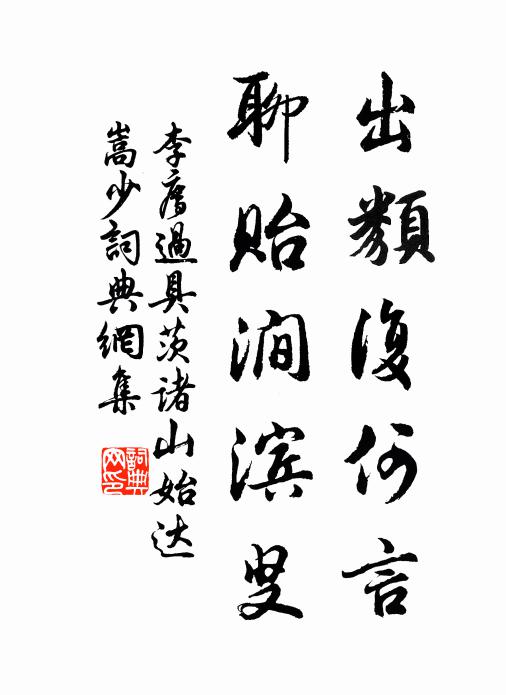 出類復何言
聊貽澗滨叟
李廌過具茨諸山始达
嵩少詞典網集
詞典网印